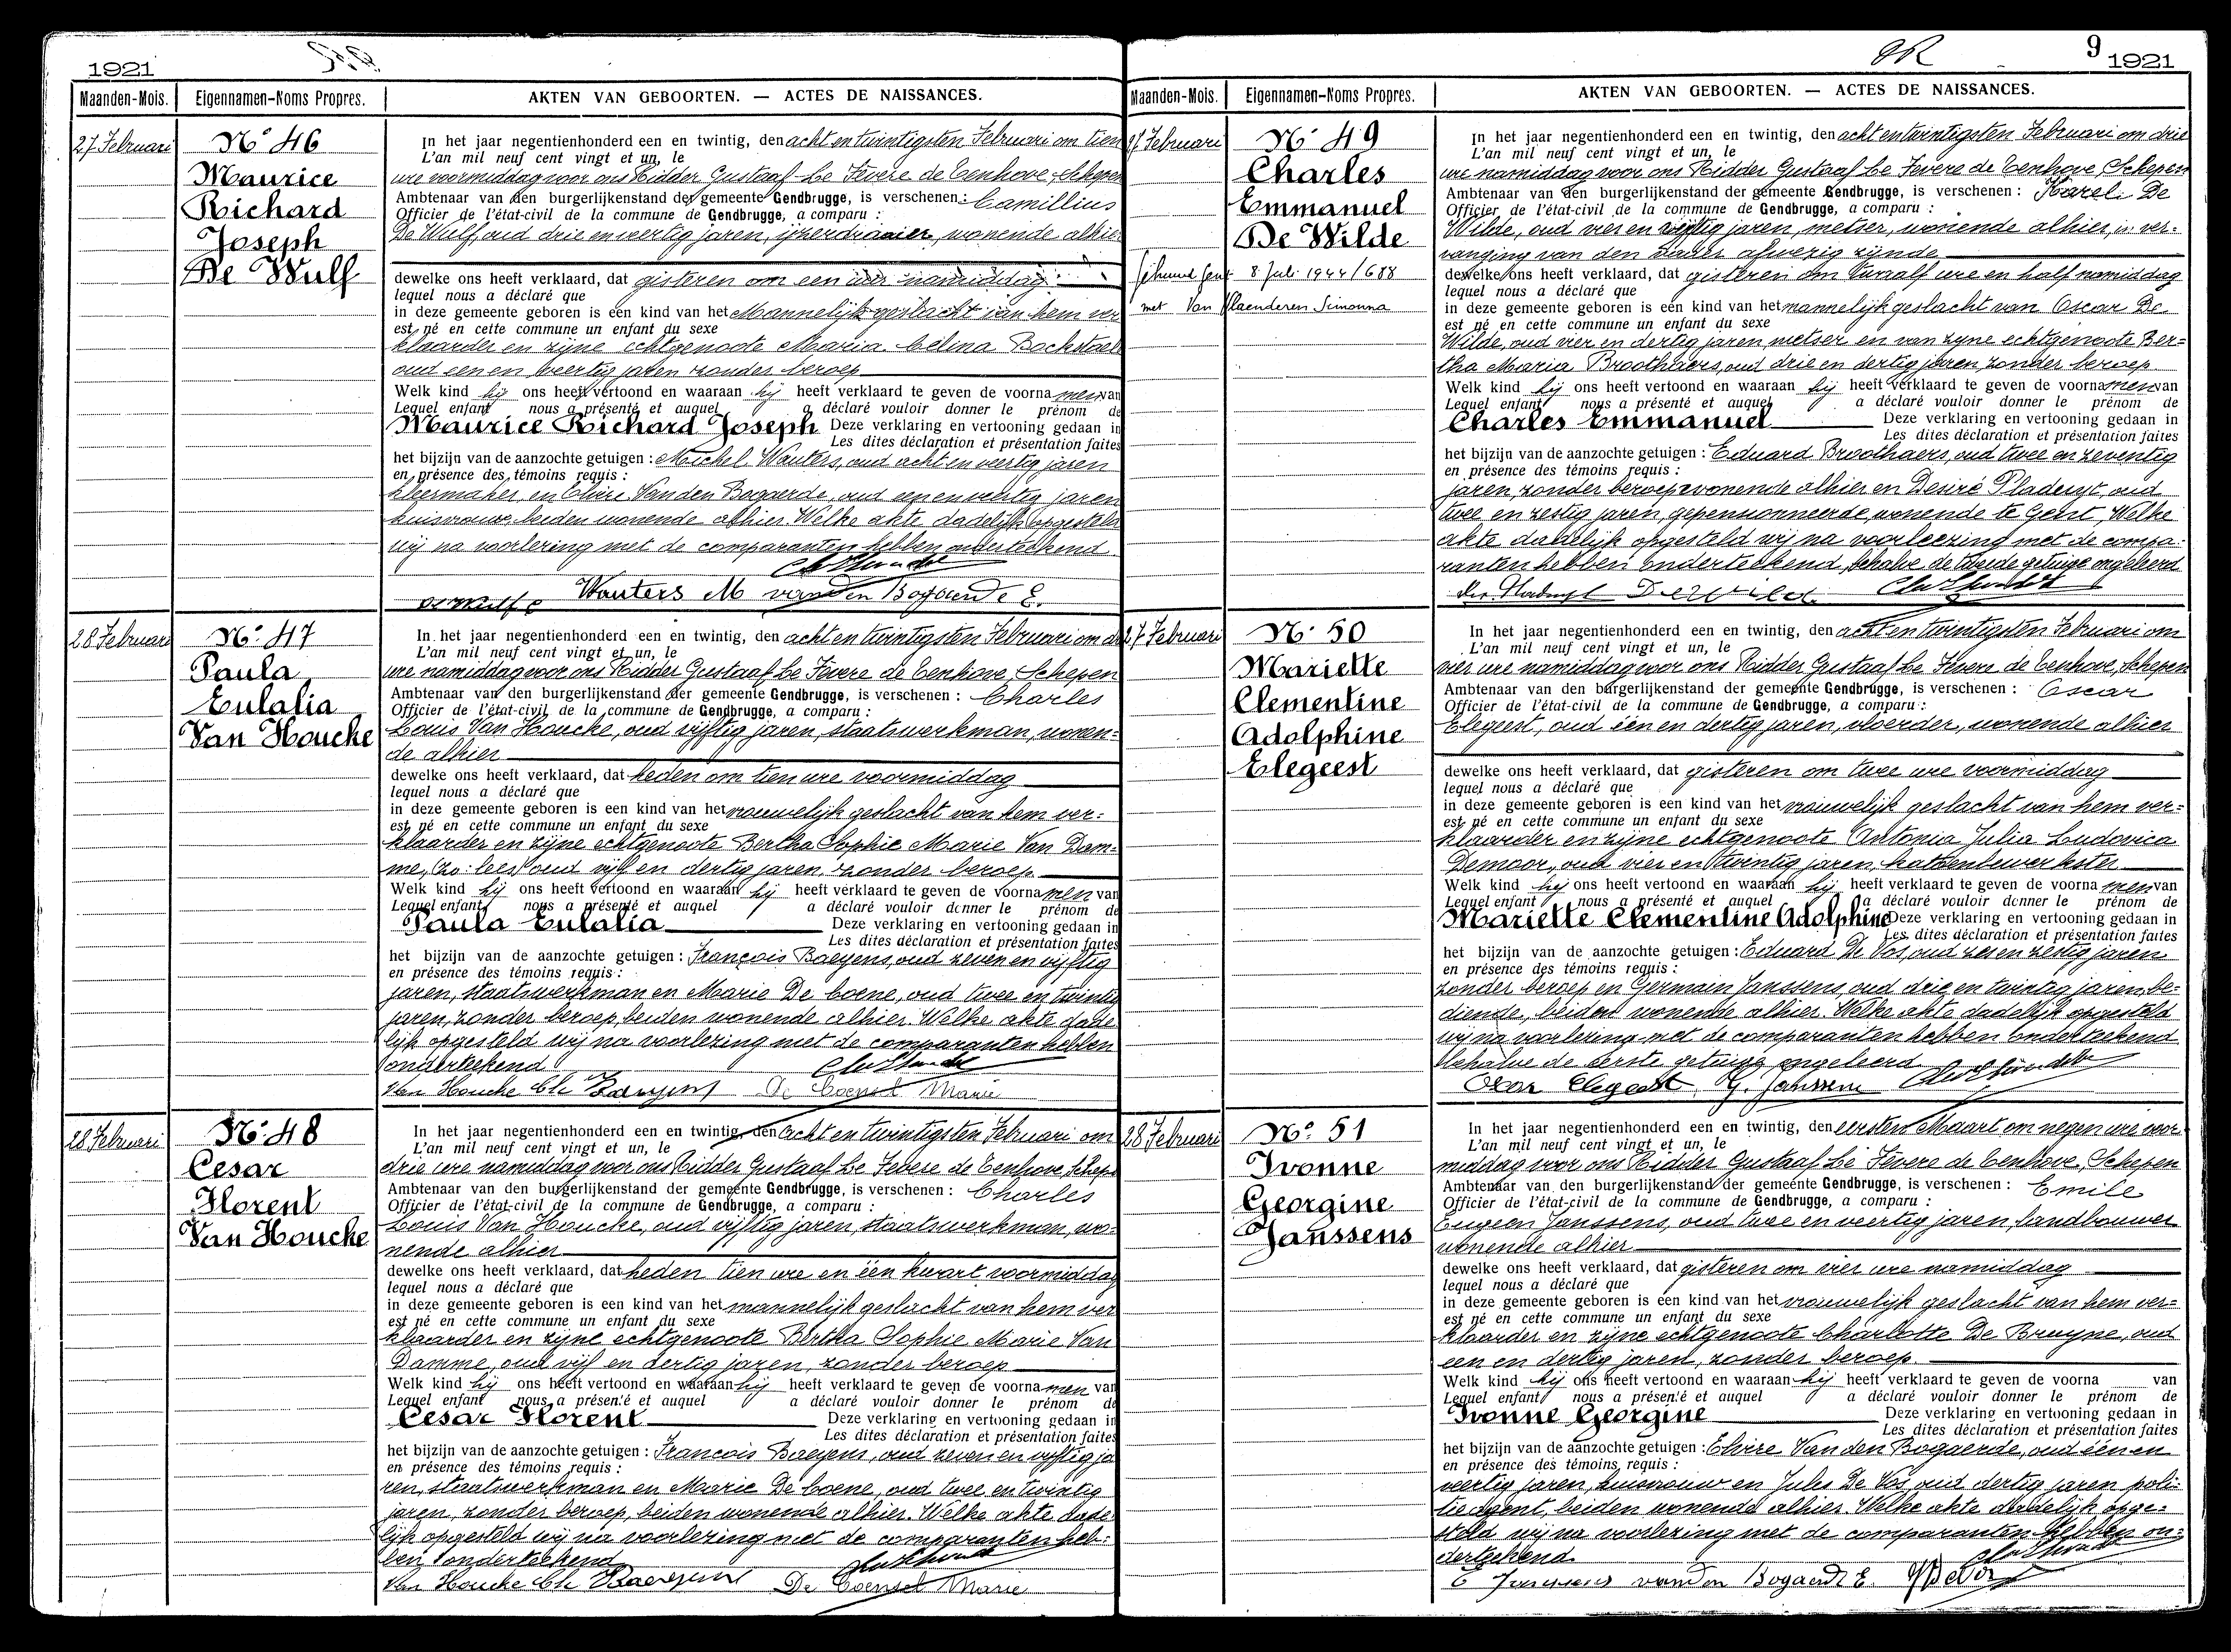 1921
Maanden-Mois. Eigennamen-Noms Propres. AKTEN VAN GEBOORTEN. — ACTES DE NAISSANCES.
27 Februari
Nº 46
Maurice
Richard
Joseph
De Wulf
In het jaar negentienhonderd een en twintig, den acht en twintigsten Februari om tien
L'an mil neuf cent vingt et un, le
ure voormiddag voor ons Ridder Gustaaf Le Fevere de Tenhove, Schepen
Ambtenaar van den burgerlijkenstand der gemeente Gendbrugge, is verschenen : Camillius
Officier de l'état-civil de la commune de Gendbrugge, a comparu :
De Wulf, oud drie en veertig jaren, ijzerdraaier, wonende alhier
dewelke ons heeft verklaard, dat gisteren om een ure namiddag
lequel nous a déclaré que
in deze gemeente geboren is een kind van het Mannelijk geslacht van hem ver
est né en cette commune un enfant du sexe
klaarder en zijne echtgenoote Maria Celina Bockstael
oud een en veertig jaren zonder beroep
Welk kind hij ons heeft vertoond en waaraan hij heeft verklaard te geven de voornamen van
Lequel enfant nous a présenté et auquel a déclaré vouloir donner le prénom de
Maurice Richard Joseph Deze verklaring en vertooning gedaan in
Les dites déclaration et présentation faites
het bijzijn van de aanzochte getuigen : Michel Wauters, oud acht en veertig jaren
en présence des témoins requis :
kleermaker, en Elvire Van den Bogaerde, oud een en veertig jaren
huisvrouw, beiden wonende alhier. Welke akte dadelijk opgesteld
wij na voorlezing met de comparanten hebben onderteekend
Wauters M van den Bogaerde E.
28 Februari
Nº 47
Paula
Eulalia
Van Houcke
In het jaar negentienhonderd een en twintig, den acht en twintigsten Februari om drie
L'an mil neuf cent vingt et un, le
ure namiddag voor ons Ridder Gustaaf Le Fevere de Tenhove, Schepen
Ambtenaar van den burgerlijkenstand der gemeente Gendbrugge, is verschenen : Charles
Officier de l'état-civil de la commune de Gendbrugge, a comparu :
Louis Van Houcke, oud vijftig jaren, staatswerkman, wonen-
de alhier
dewelke ons heeft verklaard, dat heden om tien ure voormiddag
lequel nous a déclaré que
in deze gemeente geboren is een kind van het vrouwelijk geslacht van hem ver-
est né en cette commune un enfant du sexe
klaarder en zijne echtgenoote Bertha Sophie Marie Van Dam-
me, oud vijf en dertig jaren, zonder beroep
Welk kind hij ons heeft vertoond en waaraan hij heeft verklaard te geven de voornamen van
Lequel enfant nous a présenté et auquel a déclaré vouloir donner le prénom de
Paula Eulalia Deze verklaring en vertooning gedaan in
Les dites déclaration et présentation faites
het bijzijn van de aanzochte getuigen : François Baeyens, oud zeven en vijftig
en présence des témoins requis :
jaren, staatswerkman en Marie De Coene, oud twee en twintig
jaren, zonder beroep, beiden wonende alhier. Welke akte dade
lijk opgesteld wij na voorlezing met de comparanten hebben
onderteekend
Van Houcke Ch Baeyens De Coensel Marie
28 Februari
Nº 48
Cesar
Florent
Van Houcke
In het jaar negentienhonderd een en twintig, den acht en twintigsten Februari om
L'an mil neuf cent vingt et un, le
drie ure namiddag voor ons Ridder Gustaaf Le Fevere de Tenhove, Schepen
Ambtenaar van den burgerlijkenstand der gemeente Gendbrugge, is verschenen : Charles
Officier de l'état-civil de la commune de Gendbrugge, a comparu :
Louis Van Houcke, oud vijftig jaren, staatswerkman, wo-
nende alhier
dewelke ons heeft verklaard, dat heden tien ure en één kwart voormiddag
lequel nous a déclaré que
in deze gemeente geboren is een kind van het mannelijk geslacht van hem ver
est né en cette commune un enfant du sexe
klaarder en zijne echtgenoote Bertha Sophie Marie Van
Damme, oud vijf en dertig jaren, zonder beroep
Welk kind hij ons heeft vertoond en waaraan hij heeft verklaard te geven de voornamen van
Lequel enfant nous a présenté et auquel a déclaré vouloir donner le prénom de
Cesar Florent Deze verklaring en vertooning gedaan in
Les dites déclaration et présentation faites
het bijzijn van de aanzochte getuigen : Francois Baeyens, oud zeven en vijftig ja
en présence des témoins requis :
ren, staatswerkman en Marie De Coene, oud twee en twintig
jaren, zonder beroep, beiden wonende alhier. Welke akte dade
lijk opgesteld wij na voorlezing met de comparanten heb-
ben onderteekend
Van Houcke Ch Baeyens De Coensel Marie
9 1921
Maanden-Mois. Eigennamen-Noms Propres. AKTEN VAN GEBOORTEN. — ACTES DE NAISSANCES.
27 Februari
Nº 49
Charles
Emmanuel
De Wilde
Gehuwd Gent 8 Juli 1944/688
met Van Vlaenderen Simonna
In het jaar negentienhonderd een en twintig, den acht en twintigsten Februari om drie
L'an mil neuf cent vingt et un, le
ure namiddag voor ons Ridder Gustaaf Le Fevere de Tenhove, Schepen
Ambtenaar van den burgerlijkenstand der gemeente Gendbrugge, is verschenen : Karel De
Officier de l'état-civil de la commune de Gendbrugge, a comparu :
Wilde, oud vier en vijftig jaren, metser, wonende alhier, in ver-
vanging van den vader afwezig zijnde
dewelke ons heeft verklaard, dat gisteren om twaalf ure en half namiddag
lequel nous a déclaré que
in deze gemeente geboren is een kind van het mannelijk geslacht van Oscar De
est né en cette commune un enfant du sexe
Wilde, oud vier en dertig jaren, metser en van zyne echtgenoote Ber-
tha Maria Broothaers, oud drie en dertig jaren zonder beroep
Welk kind hij ons heeft vertoond en waaraan hij heeft verklaard te geven de voornamen van
Lequel enfant nous a présenté et auquel a déclaré vouloir donner le prénom de
Charles Emmanuel Deze verklaring en vertooning gedaan in
Les dites déclaration et présentation faites
het bijzijn van de aanzochte getuigen : Eduard Broothaers, oud twee en zeventig
en présence des témoins requis :
jaren, zonder beroep wonende alhier en Desiré Pladeryt, oud
twee en zestig jaren, gepensionneerde, wonende te Gent, Welke
akte dadelijk opgesteld wij na voorleezing met de compa-
ranten hebben onderteekend, behalve de eerste getuige ongeleerd
27 Februari
Nº 50
Mariette
Clementine
Adolphine
Elegeest
In het jaar negentienhonderd een en twintig, den acht en twintigsten Februari om
L'an mil neuf cent vingt et un, le
vier ure namiddag voor ons Ridder Gustaaf Le Fevere de Tenhove, Schepen
Ambtenaar van den burgerlijkenstand der gemeente Gendbrugge, is verschenen : Oscar
Officier de l'état-civil de la commune de Gendbrugge, a comparu :
Elegeest, oud één en dertig jaren, vloerder, wonende alhier
dewelke ons heeft verklaard, dat gisteren om twee ure voormiddag
lequel nous a déclaré que
in deze gemeente geboren is een kind van het vrouwelijk geslacht van hem ver-
est né en cette commune un enfant du sexe
klaarder en zijne echtgenoote Antonia Julia Ludovica
Demoor, oud vier en twintig jaren, katoenbewerkster
Welk kind hij ons heeft vertoond en waaraan hij heeft verklaard te geven de voornamen van
Lequel enfant nous a présenté et auquel a déclaré vouloir donner le prénom de
Mariette Clementine Adolphine Deze verklaring en vertooning gedaan in
Les dites déclaration et présentation faites
het bijzijn van de aanzochte getuigen : Eduard De Vos, oud zes en zestig jaren
en présence des témoins requis :
zonder beroep en Germain Janssens, oud drie en twintig jaren, be-
diende, beiden wonende alhier. Welke akte dadelijk opgesteld
wij na voorlezing met de comparanten hebben onderteekend
behalve de eerste getuige ongeleerd
Oscar Elegeest G. Janssens
28 Februari
Nº 51
Ivonne
Georgine
Janssens
In het jaar negentienhonderd een en twintig, den eersten Maart om negen ure voor
L'an mil neuf cent vingt et un, le
middag voor ons Ridder Gustaaf Le Fevere de Tenhove, Schepen
Ambtenaar van den burgerlijkenstand der gemeente Gendbrugge, is verschenen : Emile
Officier de l'état-civil de la commune de Gendbrugge, a comparu :
Eugeen Janssens, oud twee en veertig jaren, landbouwer
wonende alhier
dewelke ons heeft verklaard, dat gisteren om vier ure namiddag
lequel nous a déclaré que
in deze gemeente geboren is een kind van het vrouwelijk geslacht van hem ver-
est né en cette commune un enfant du sexe
klaarder en zijne echtgenoote Charlotte De Bruyne, oud
een en dertig jaren, zonder beroep.
Welk kind hij ons heeft vertoond en waaraan hij heeft verklaard te geven de voorna van
Lequel enfant nous a présenté et auquel a déclaré vouloir donner le prénom de
Ivonne Georgine Deze verklaring en vertooning gedaan in
Les dites déclaration et présentation faites
het bijzijn van de aanzochte getuigen : Elvire Van den Bogaerde, oud één en
en présence des témoins requis :
veertig jaren, huisvrouw en Jules De Vos, oud dertig jaren poli-
tie agent, beiden wonende alhier. Welke akte dadelijk opge-
steld wij na voorlezing met de comparanten hebben on-
derteekend.
E Janssens van den Bogaerde E. J De Vos